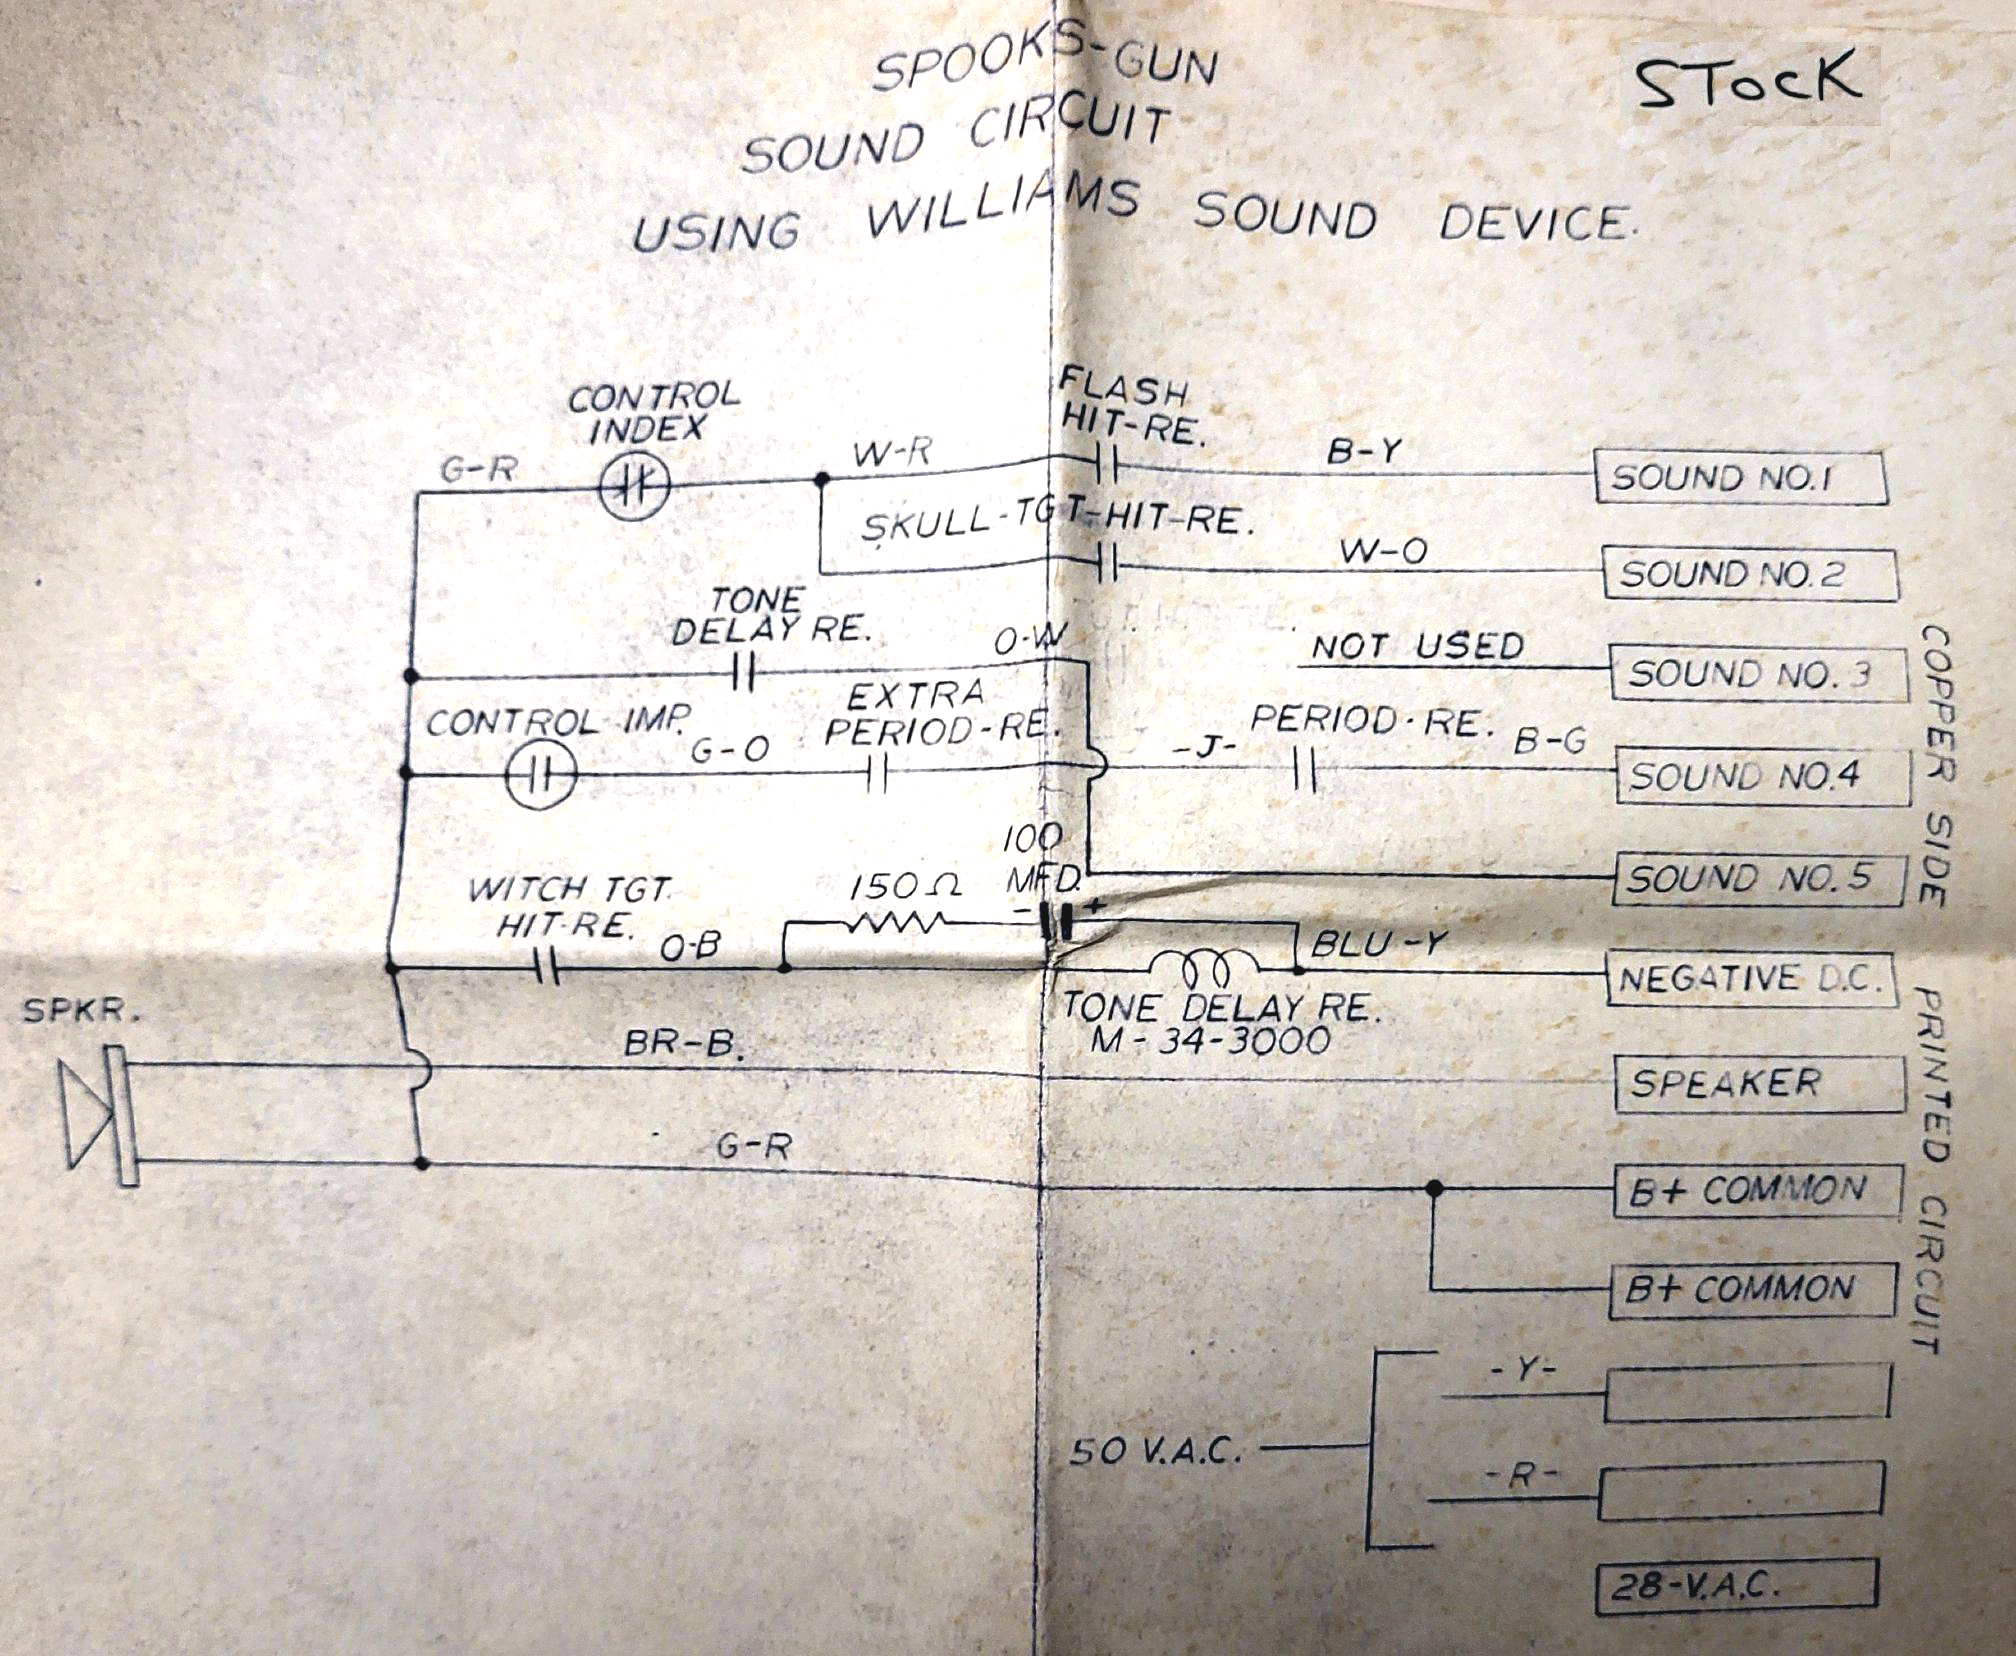 SPOOKS-GUN
STOCK
SOUND CIRCUIT
USING WILLIAMS SOUND DEVICE.
CONTROL
INDEX
FLASH
HIT-RE.
G-R
W-R
B-Y
SOUND NO.1
SKULL-TGT-HIT-RE.
W-O
SOUND NO.2
TONE
DELAY RE.
O-W
NOT USED
SOUND NO. 3
CONTROL IMP.
G-O
EXTRA
PERIOD-RE.
-J-
PERIOD-RE.
B-G
SOUND NO.4
100
MFD.
- +
SOUND NO. 5
WITCH TGT.
HIT-RE.
O-B
150Ω
BLU-Y
NEGATIVE D.C.
TONE DELAY RE.
M-34-3000
SPKR.
BR-B.
SPEAKER
G-R
B+ COMMON
B+ COMMON
50 V.A.C.
-Y-
-R-
28-V.A.C.
COPPER SIDE
PRINTED CIRCUIT